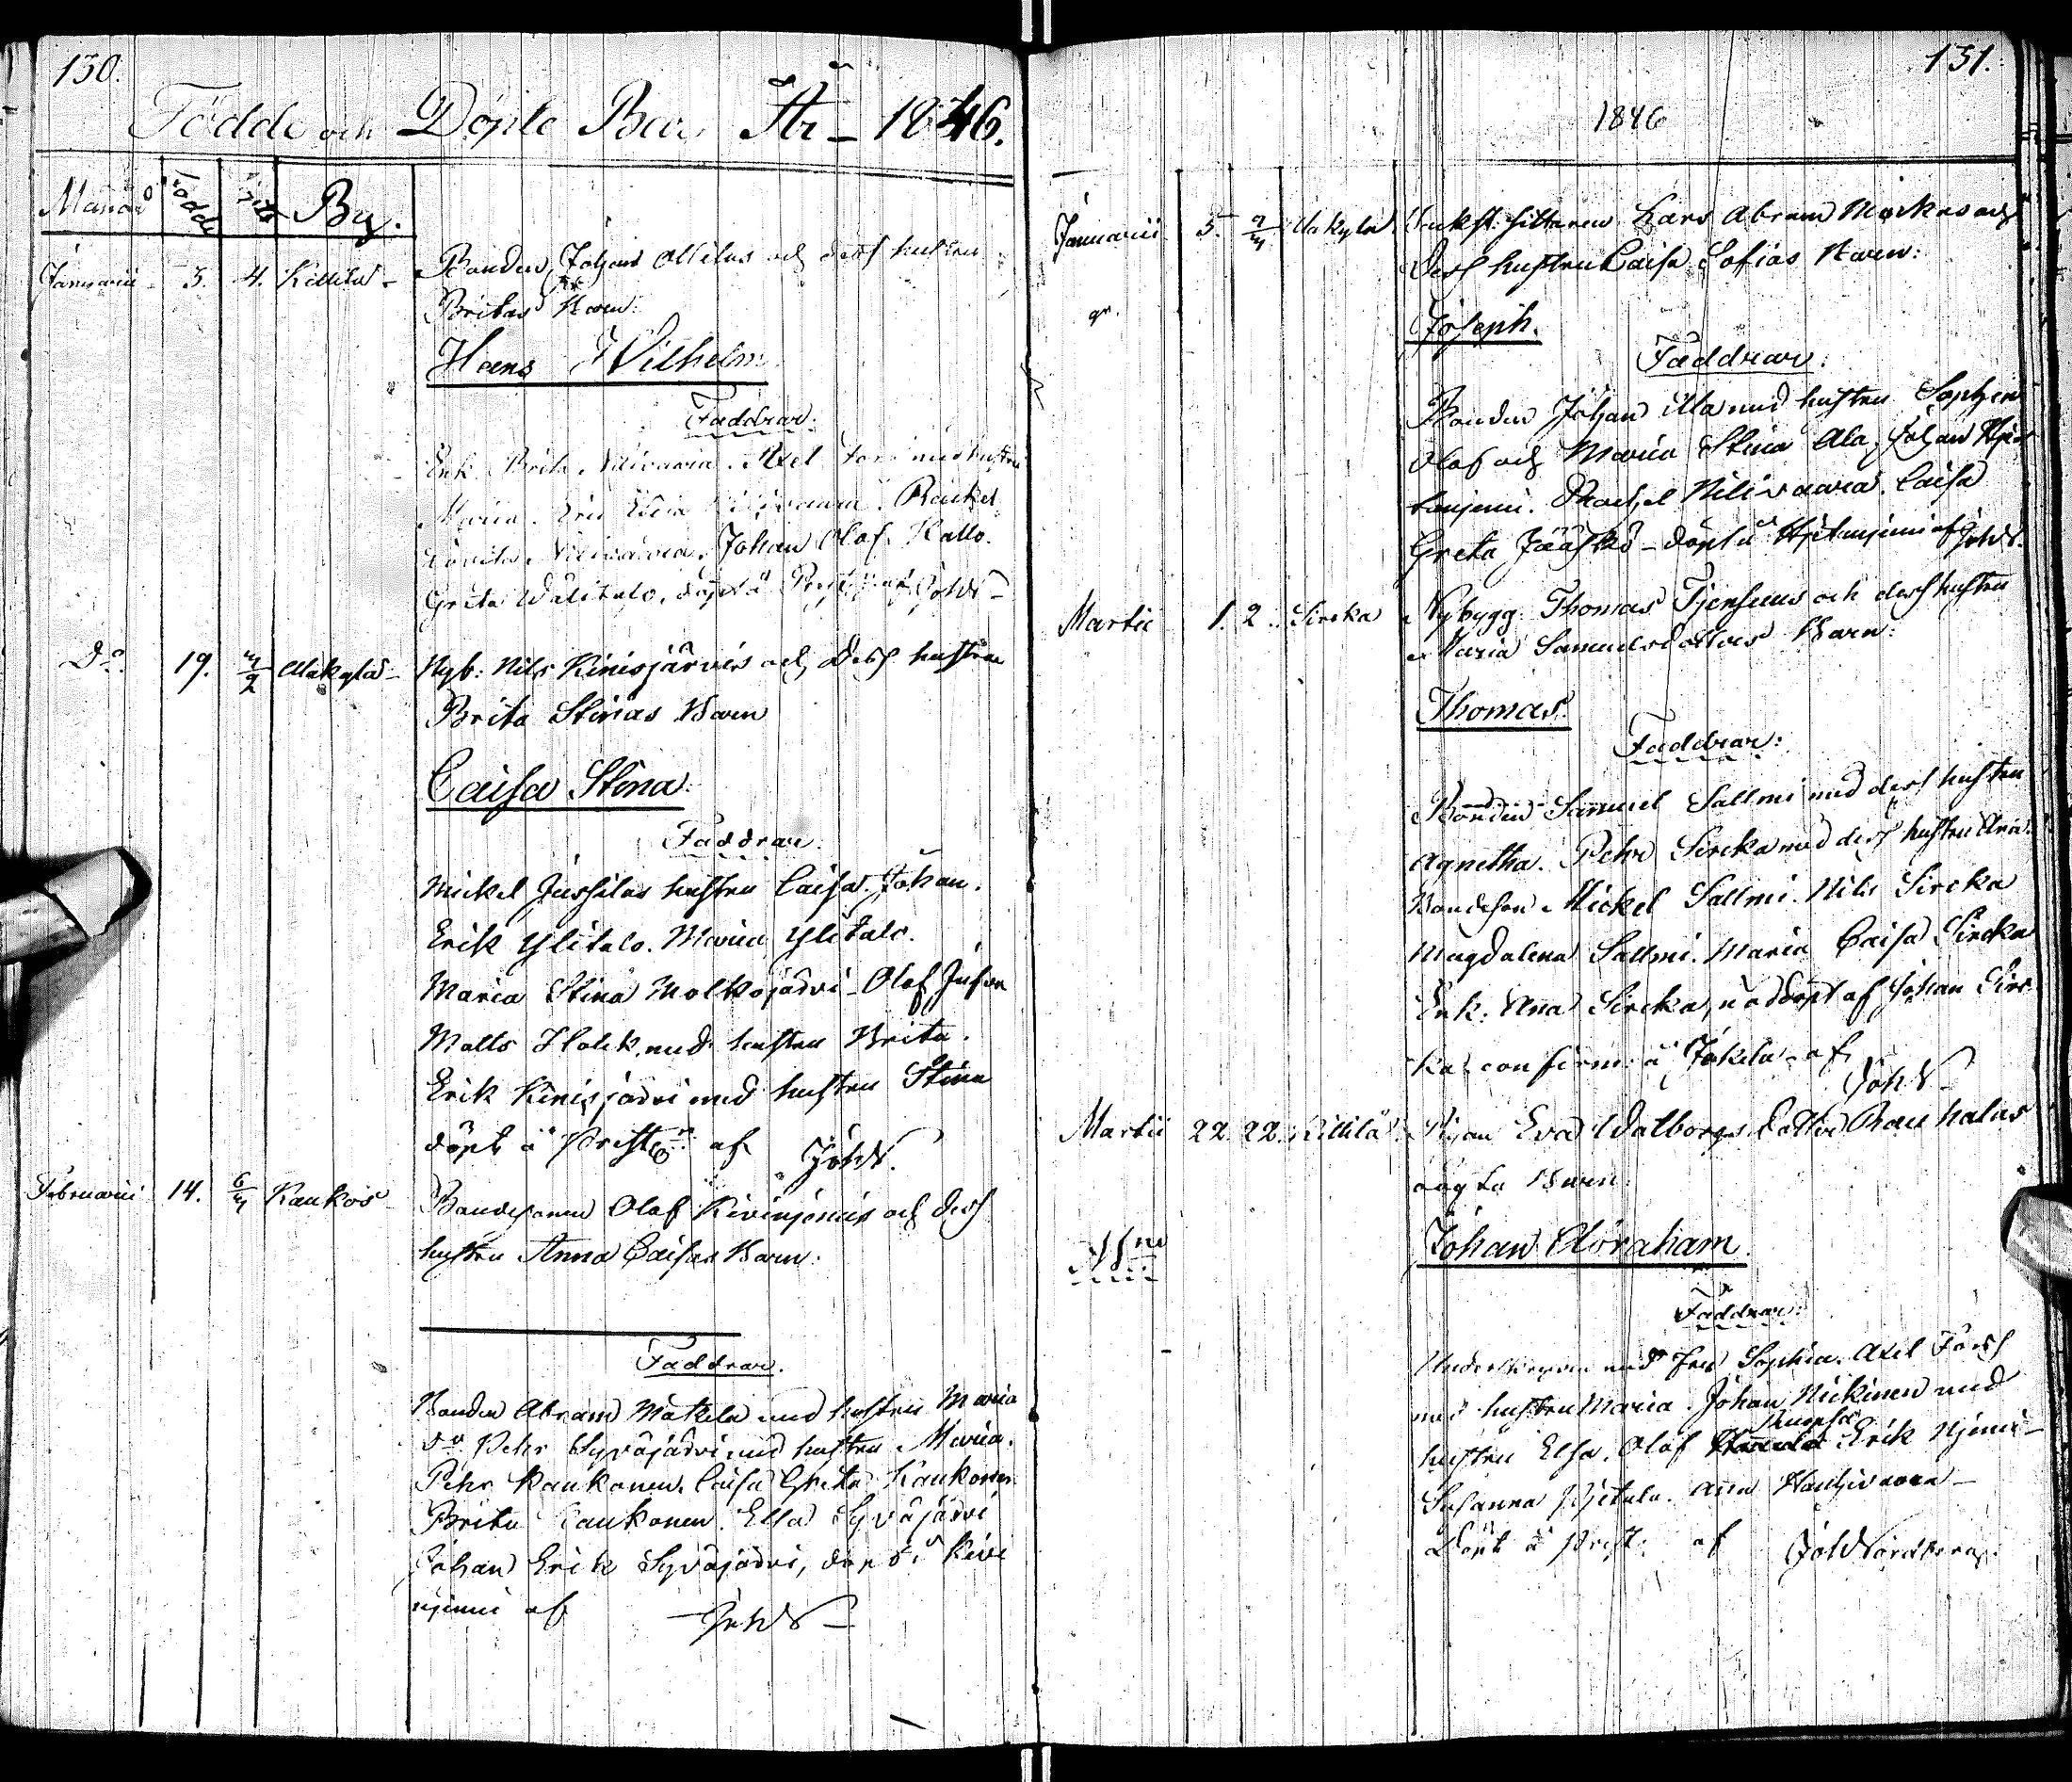 130.
Födde och Döpte Barn År - 1846.
Månad Födde Döpte By.
Januarii - 3. 4. Kittilä -
Bonden Johan Ollilas och dess hustru
Britas Barn:
Hans Wilhelm
Faddrar:
Enk. Brita Nilivaara. Axel Fors med hustru
Maria. Eric Elia Nilivaara. Rackel
Nilivaara. Johan Olof Kallo.
Greta Wälitalo, döpt å Prest af JohN -
Do. 19. 4/2 Alakylä -
Nyb: Nils Kinisjärvis och dess hustru
Brita Stinas Barn
Caisa Stina
Faddrar.
Mickel Jussilas hustru Caisa. Johan.
Erik Ylitalo. Maria Ylitalo.
Maria Stina Molkojärvi - Olof
Matts Holck med hustru Brita.
Erik Kinisjärvi med hustru Stina
döpt å Prist af JohN.
Februarii 14. 6/4 Kaukos -
Bondesonen Olof Kivinjemis och dess
hustru Anna Caisas Barn:
Faddrar.
Bonden Abram Mäkelä med hustru Maria
do Pehr Syväjärvi med hustru Maria.
Pehr Kaukonen. Caisa Greta Kaukonen
Brita Kaukonen. Ella Syväjärvi
Johan Erik Syväjärvi, döpt i Kivi
njemi af JohN -
131.
1846
Januarii 5. 9/4 Alakylä
Lars Abram Markus och
Dess hustru Caisa Sofias Barn:
Joseph.
Faddrar:
Bonden Johan Ala med hustru Sophia
Olof och Maria Stina Ala, Johan
Rachel Nilivaara. Caisa
Greta Jääskö - döpt å Hjetanjemi af JohN.
Martii 1. 2. Sircka
Nybygg: Thomas Tjensuus och dess hustru
Maria Samuelsdotters Barn:
Thomas.
Faddrar:
Bonden Samuel Sallmi med dess hustru
Agnetha. Pehr Sircka med dess hustru Anna
Bondeson Mickel Sallmi. Nils Sircka
Magdalena Sallmi. Maria Caisa Sircka
Enk. Anna Sircka, nöddöpt af Johan Sirc
ka confirm: å Jokela af
JohN -
Martii 22. 22. Kittilä
Pigan Eva Walborgs dotter Rauhalas
oägta Barn:
Johan Abraham
Faddrar:
Undertecknan med Fru Sophia. Axel Forss
med hustru Maria. Johan Nickinen med
hustru Elsa. Olof Erik Njemi -
Susanna Pjetala. Anna Hanhivaara -
Döpt å Prest: af Joh Nordberg.